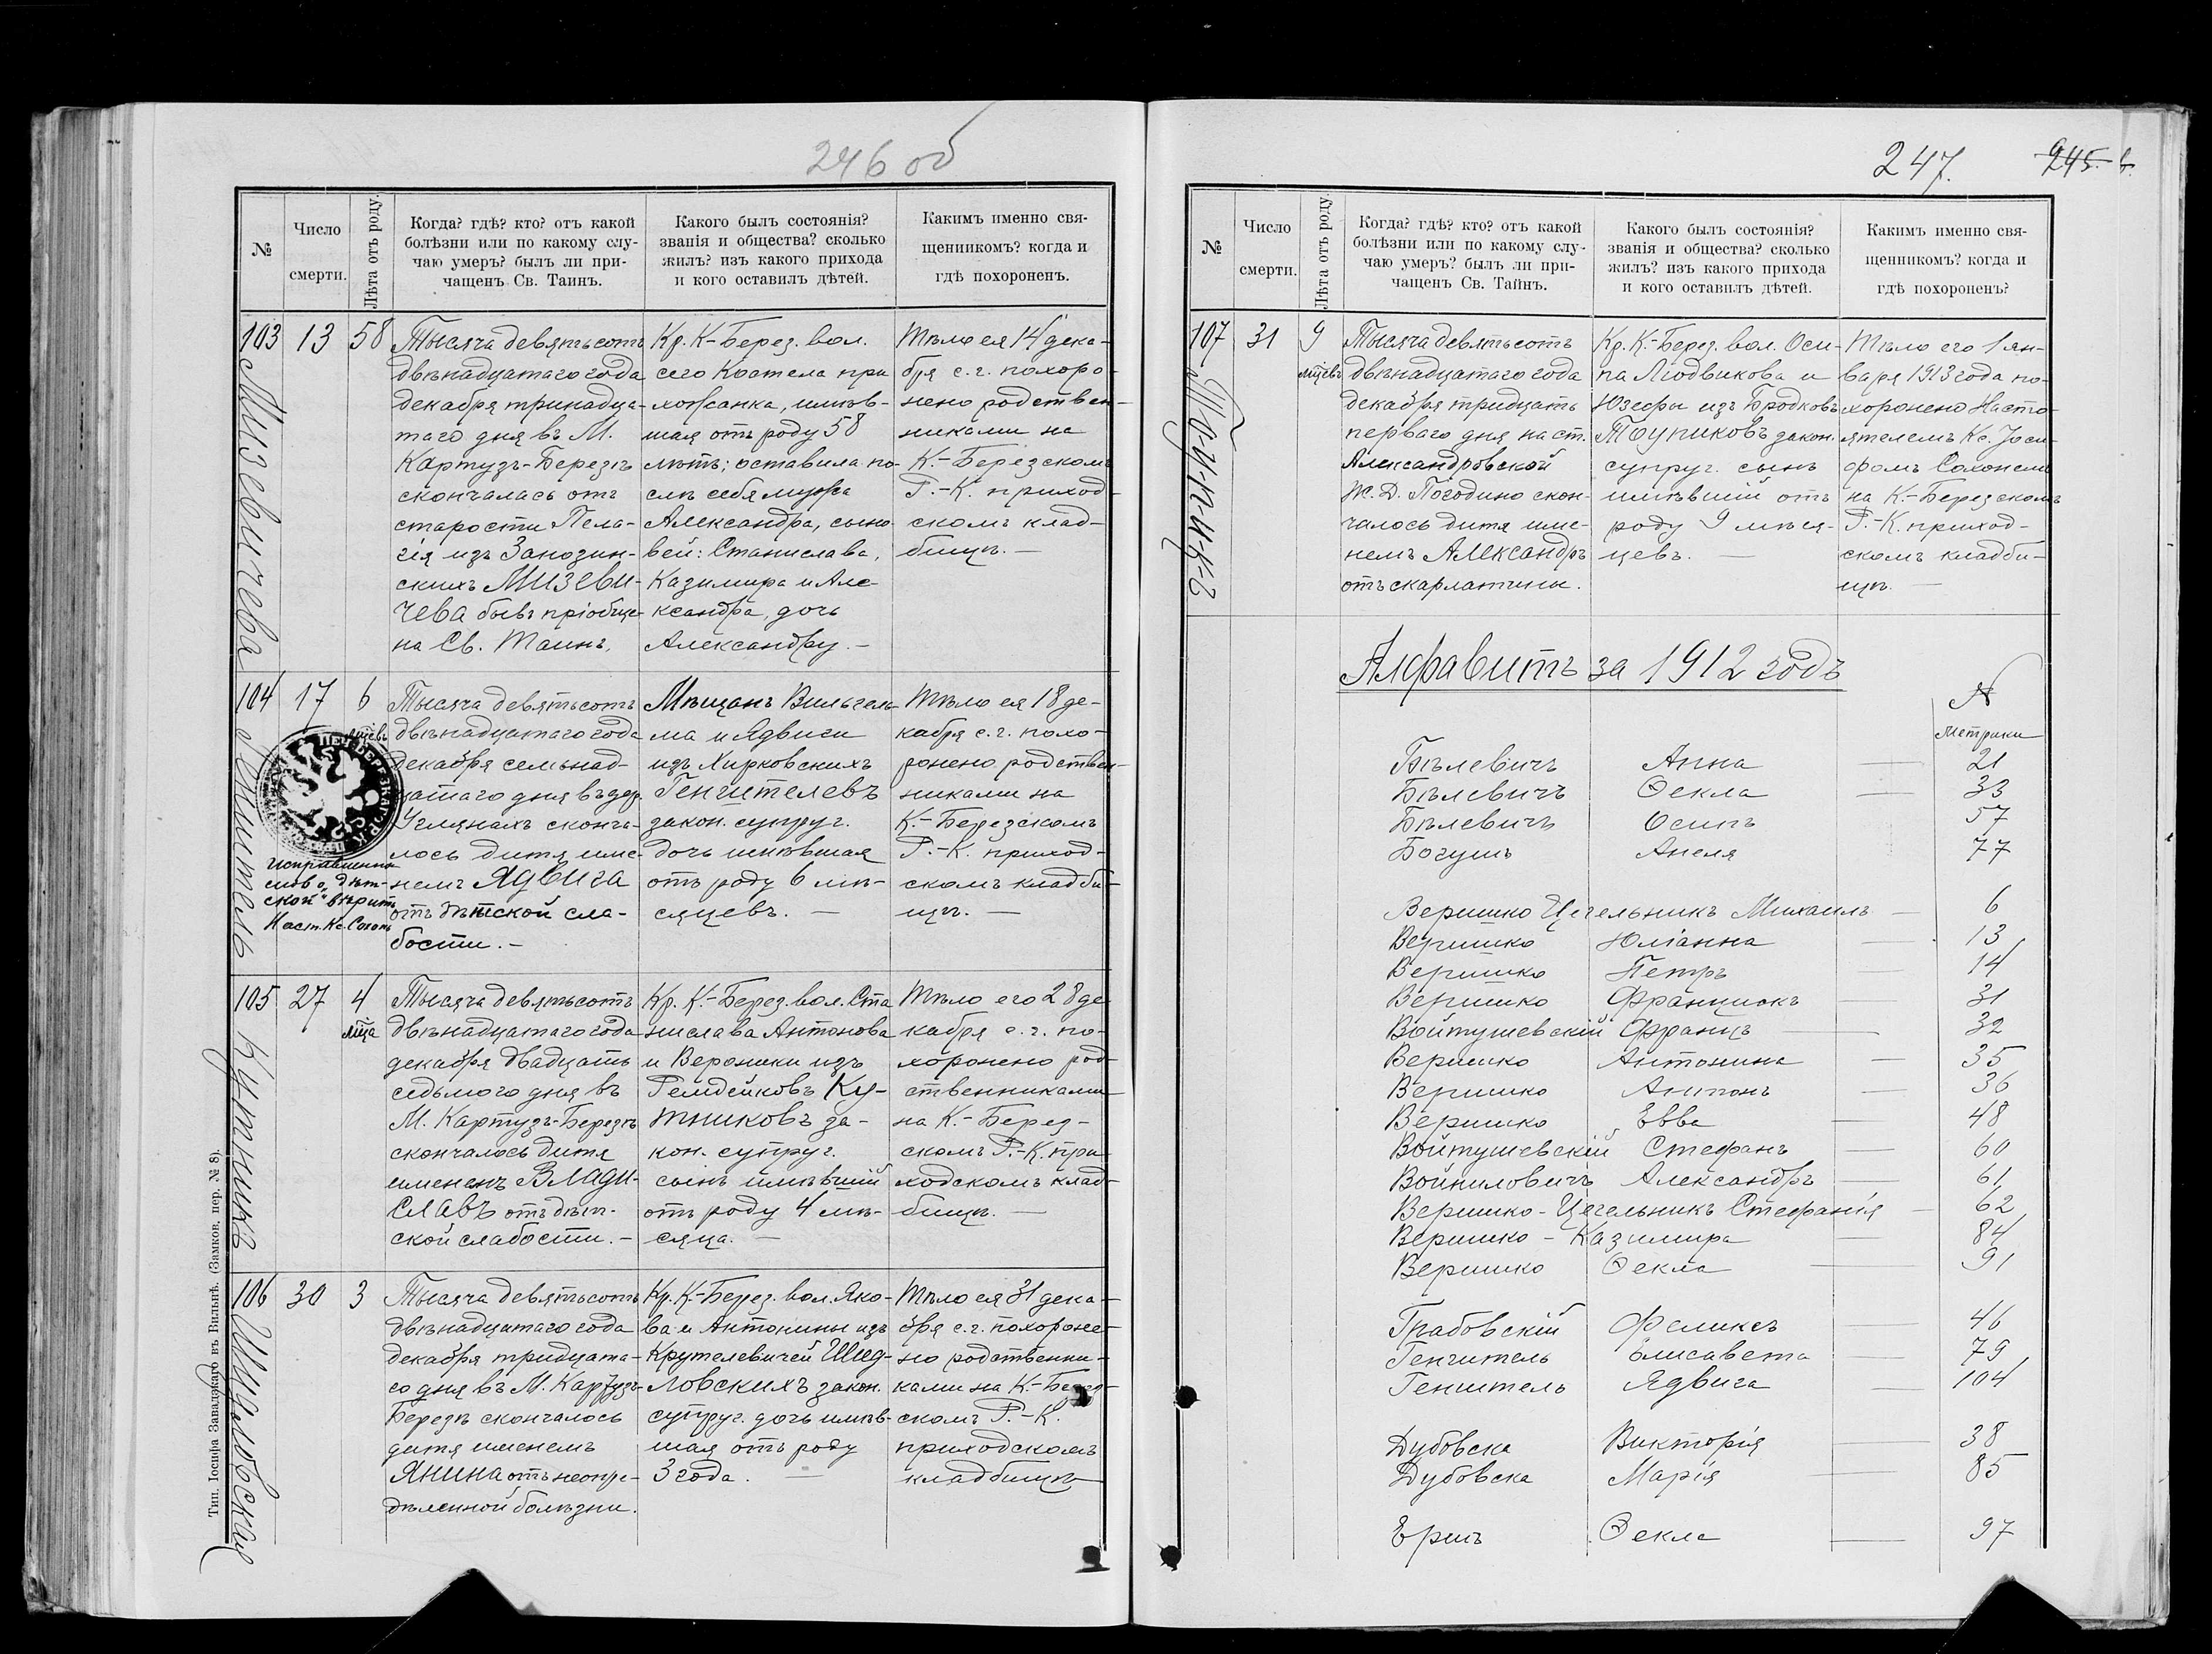 246 об
№
Число
смерти.
Лѣта отъ роду.
Когда? гдѣ? кто? отъ какой
болѣзни или по какому слу-
чаю умеръ? былъ ли при-
чащенъ Св. Таинъ.
Какого былъ состоянія?
званія и общества? сколько
жилъ? изъ какого прихода
и кого оставилъ дѣтей.
Какимъ именно свя-
щенникомъ? когда и
гдѣ похороненъ.
103 13 58
Мизевичева
Тысяча девятьсотъ
двѣнадцатаго года
декабря тринадца-
таго дня въ М.
Картузъ-Березѣ
скончалась отъ
старости Пела-
гія изъ Занозин-
скихъ Мизеви-
чева бывъ пріобще-
на Св. Таинъ.
Кр. К-Берез. вол.
сего Костела при
хожанка, имѣв-
шая отъ роду 58
лѣтъ; оставила по-
слѣ себя мужа
Александра, сыно-
вей: Станислава,
Казимира и Але-
ксандра, дочь
Александру.-
Тѣло ея 14 дека-
бря с. г. похоро-
нено родствен-
никами на
К.-Березскомъ
Р.-К. приход-
скомъ клад-
бищѣ.-
104 17 6
мѣсяцевъ
Генштель
Тысяча девятьсотъ
двѣнадцатаго года
декабря семьнад-
цатаго дня въ дер.
Углянахъ сконча-
лось дитя име-
немъ Ядвига
отъ дѣтской сла-
бости.-
Исправленно
слово "дѣт-
ской" вѣрить
Наст. Кс. Сохонь
Мѣщанъ Вильгель-
ма и Ядвиги
изъ Хирковскихъ
Генштелевъ
закон. супруг.
дочь имѣвшая
отъ роду 6 мѣ-
сяцевъ.-
Тѣло ея 18 де-
кабря с. г. похо-
ронено родствен-
никами на
К.-Березскомъ
Р.-К. приход-
скомъ кладби-
щѣ.-
105 27 4
мѣсца
Кутникъ
Тысяча девятьсотъ
двѣнадцатаго года
декабря двадцать
седьмого дня въ
М. Картузъ-Березѣ
скончалось дитя
именемъ Влади-
славъ отъ дѣт-
ской слабости.-
Кр. К.-Берез. вол. Ста
нислава Антонова
и Вероники изъ
Ремдейковъ Ку-
тниковъ за-
кон. супруг.
сынъ имѣвшій
отъ роду 4 мѣ-
сяца.-
Тѣло его 28 де
кабря с. г. по-
хоронено род-
ственниками
на К.-Берез-
скомъ Р.-К. при-
ходскомъ клад-
бищѣ.-
106 30 3
Шидловская
Тысяча девятьсотъ
двѣнадцатаго года
декабря тридцата-
го дня въ М. Картузъ-
Березѣ скончалось
дитя именемъ
Янина отъ неопре-
дѣленной болѣзни.
Кр. К-Берез. вол. Яко-
ва и Антонины изъ
Крутелевичей Шид-
ловскихъ закон.
супруг. дочь имѣв-
шая отъ роду
3 года.-
Тѣло ея 31 дека-
бря с. г. похороне-
но родственни-
ками на К.-Берез-
скомъ Р.-К.
приходскомъ
кладбищѣ
Тип. Іосифа Завадзкаго въ Вильнѣ. (Замков. пер. № 8).
247.
245.
№
Число
смерти.
Лѣта отъ роду.
Когда? гдѣ? кто? отъ какой
болѣзни или по какому слу-
чаю умеръ? былъ ли при-
чащенъ Св. Тайнъ.
Какого былъ состоянія?
званія и общества? сколько
жилъ? изъ какого прихода
и кого оставилъ дѣтей.
Какимъ именно свя-
щенникомъ? когда и
гдѣ похороненъ?
107 31 9
мѣсцевъ
Тысяча девятьсотъ
двѣнадцатаго года
декабря тридцать
перваго дня на ст.
Александровской
Ж. Д. Погодино скон-
чалось дитя име-
немъ Александръ
отъ скарлатины.
Кр. К.-Берез. вол. Оси-
па Людвикова и
Юзефы изъ Бродковъ
Тоупиковъ закон.
супруг. сынъ
имѣвшій отъ
роду 9 мѣся-
цевъ.-
Тѣло его 1 ян-
варя 1913 года по-
хоронено Насто-
ятелемъ Кс. Іоси-
фомъ Сохонемъ
на К.-Березскомъ
Р.-К. приход-
скомъ кладби-
щѣ.-
Алфавитъ за 1912 годъ
№
метрики
Бѣлевичъ Анна - 21
Бѣлевичъ Ѳекла - 33
Бѣлевичъ Осипъ 57
Богушъ Анеля 77
Веришко Цегельникъ Михаилъ - 6
Веришко Юліанна - 13
Веришко Петръ - 14
Веришко Францискъ - 31
Войтушевскій Францъ - 32
Веришко Антонина - 35
Веришко Антонъ - 36
Веришко Евва - 48
Войтушевскій Стефанъ - 60
Войниловичъ Александръ - 61
Веришко-Цегельникъ Стефанія - 62
Веришко - Казимира - 84
Веришко Ѳекла - 91
Грабовскій Феликсъ - 46
Генштель Елисавета - 79
Генштель Ядвига - 104
Дубовска Викторія - 38
Дубовска Марія - 85
Ериъ Ѳекла - 97